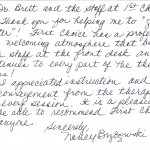 Dr. Britt and the staff at 1st Ch
Thank you for helping me to "g
tter"! First Choice has a profes
welcoming atmosphere that b
the staff at the front desk an
tinues to every part of the the
s!
I appreciated instruction and
couragement from the therap
every session. It is a pleasu
be able to recommend First Cho
anyone.
Sincerely,
Brzozowski